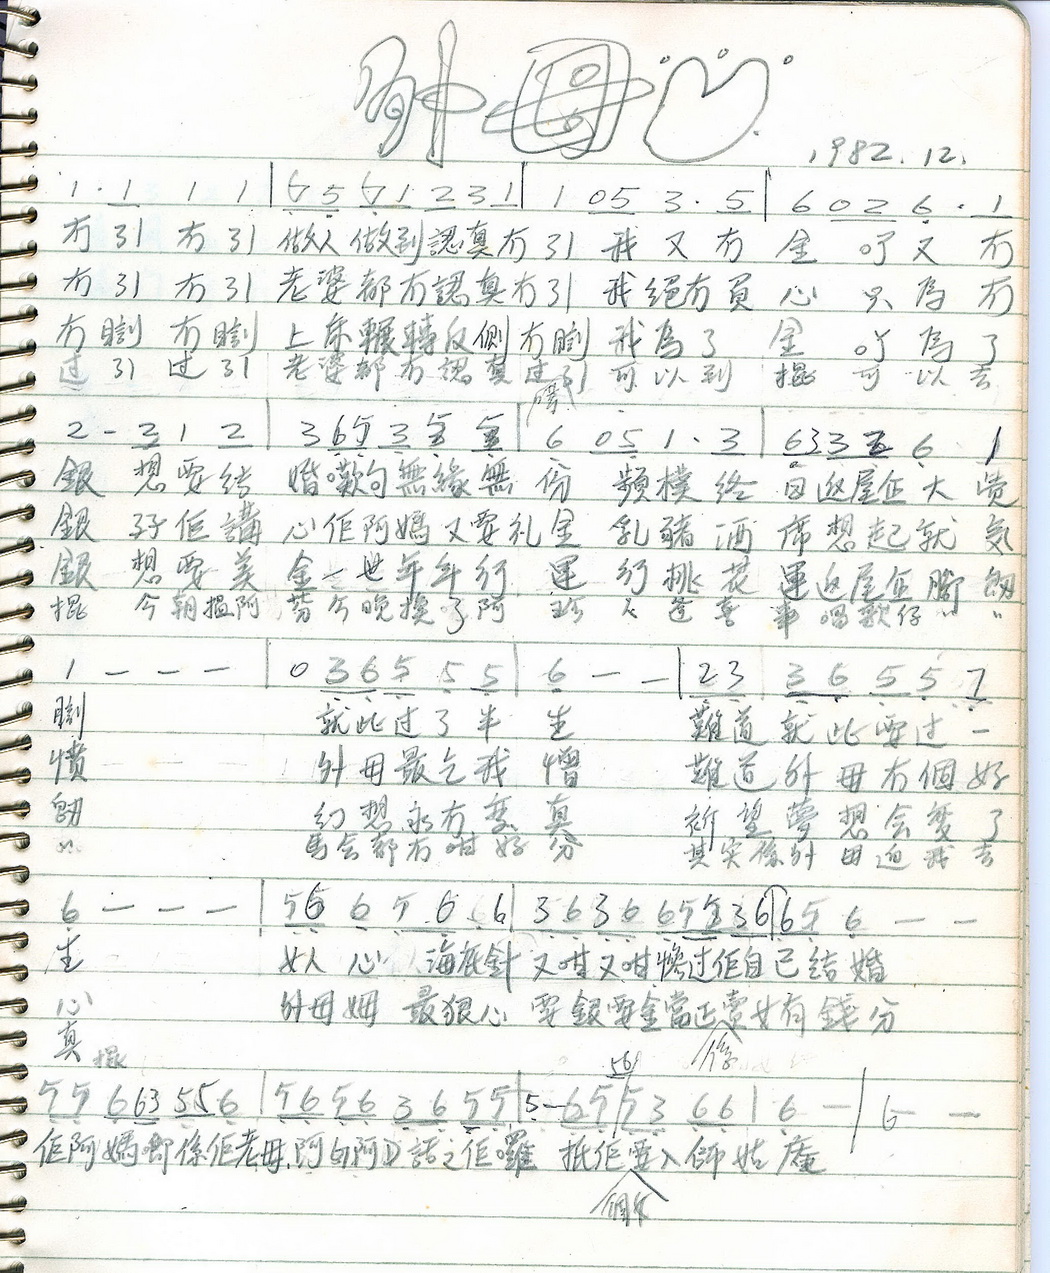 外母心
1982.12.
1 . 1 1 1 | 6 5 6 1 2 3 1 | 1 05 3 . 5 | 6 02 6 . 1
冇引 冇引 做人做到認真冇引 我又冇金 吖又冇
冇引 冇引 老婆都冇認真冇引 我絕冇貪心 只為冇
冇瞓 冇瞓 上床輾轉反側冇瞓 我為了金 吖為了
过引 过引 老婆都冇認真过引 可以到掍 可以去
2 - 3 1 2 | 3 65 3 5 | 6 05 1 . 3 | 633 2 6 1
銀 想要結婚嘆句無緣無份 頻撲終日返屋企大覺
銀 孖佢講心佢阿媽又要礼金 乳豬酒席想起就氣
銀 想要美金一世年年行運 行桃花運返屋企腳
掍 今朝搵阿 今晚換了阿 唱歌仔〃〃
1 - - - | 0 365 5 5 | 6 - - | 23 36 55 7
瞓 就此过了半生 難道就此要过一
憤 外母最乞我憎 難道外母冇個好
幻想永冇变真 祈望夢想会变了
馬会都冇咁好分 其实係外母迫我去
6 - - - | 56 6 5 6 6 | 3 6 3 6 65 3 6 65 6 - -
生 女人心 海底針 又咁又咁憎过佢自己結婚
心 外母姆 最狠心 要銀要金當正賣女有錢分
真 掍 係
55 663 55 6 | 56 56 3 6 55 | 5- 65 53 66 | 6 - | 6 -
佢阿媽即係佢老母,阿白阿D話之佢囉 抵佢要入師姑庵
個个